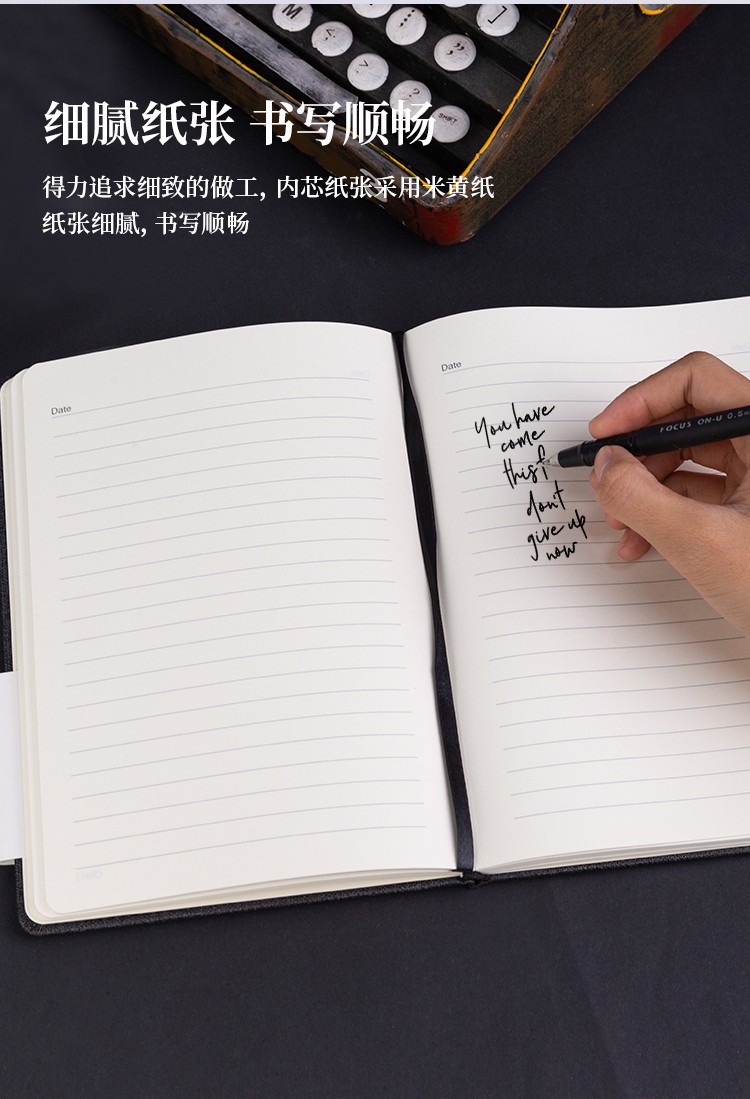 M
?
SHIFT
细腻纸张 书写顺畅
得力追求细致的做工, 内芯纸张采用米黄纸
纸张细腻, 书写顺畅
Date
Date
You have
come
this f
don't
give up
now
FOCUS ON-U 0.5